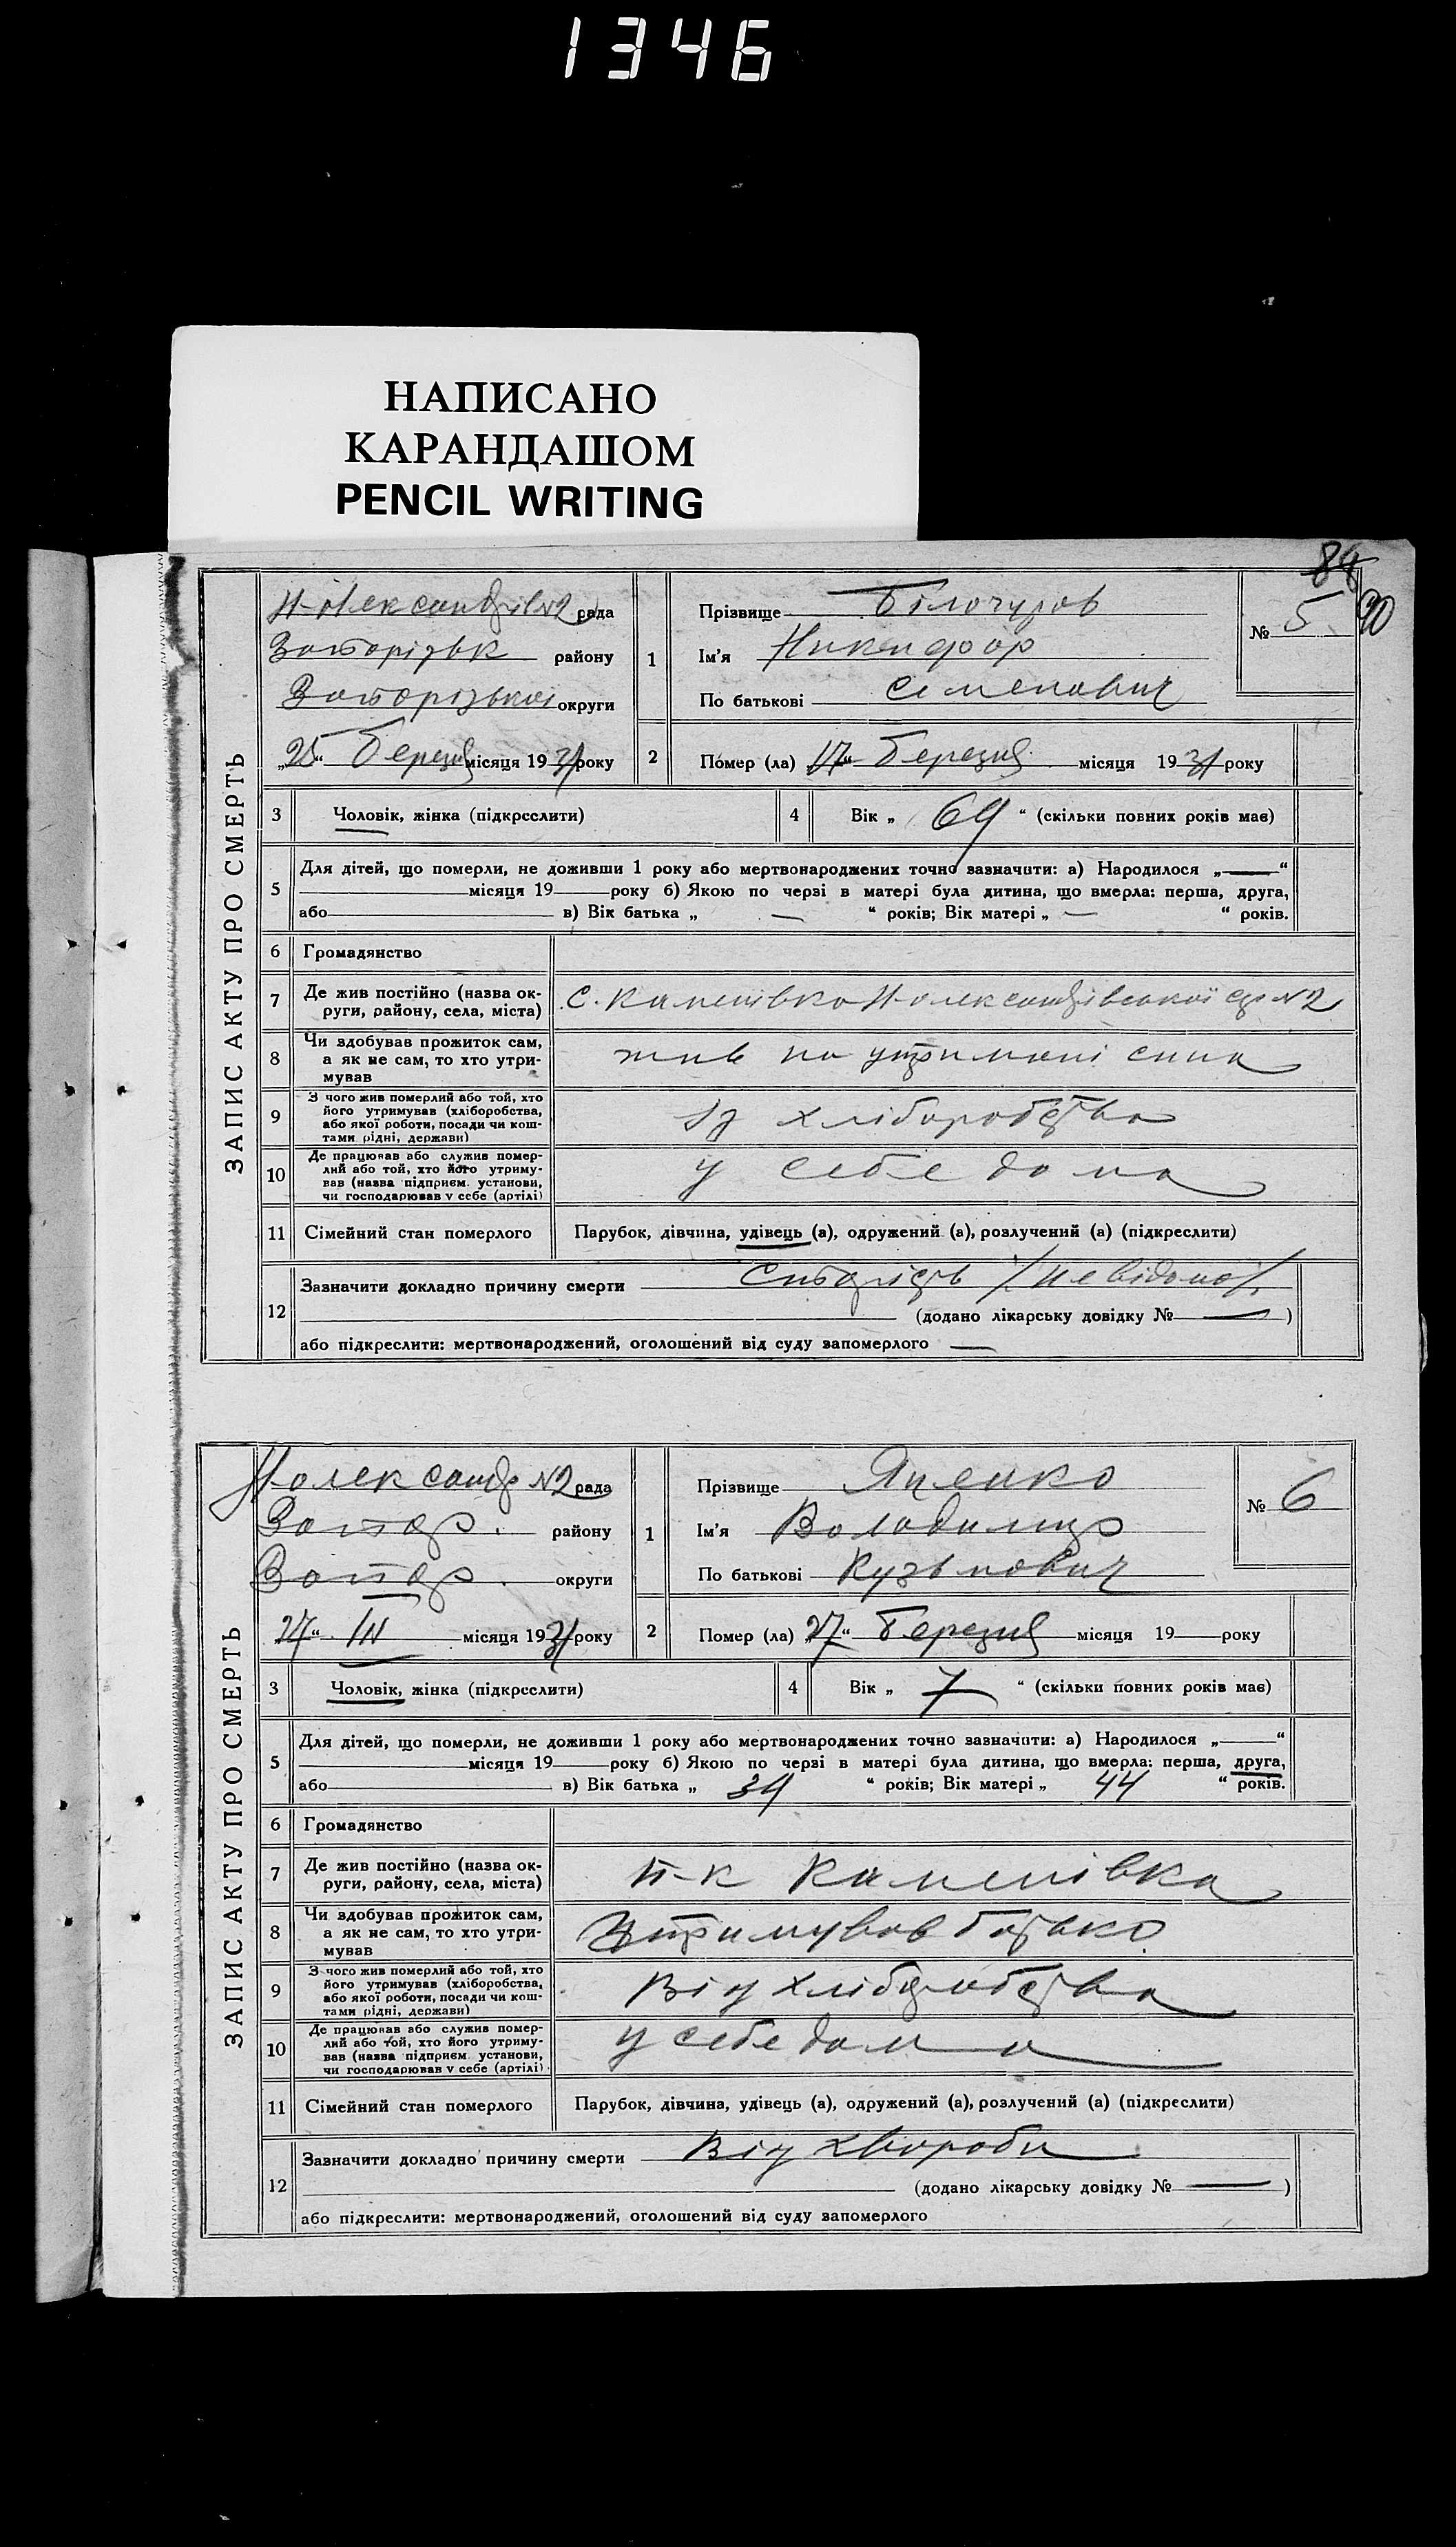 1346
НАПИСАНО
КАРАНДАШОМ
PENCIL WRITING
90
ЗАПИС АКТУ ПРО СМЕРТЬ
Н-Олександрів №2 рада
Запорізьк району
Запорізької округи
„25“ березня місяця 1931 року
1
Прізвище Білочуров
Ім'я Никифор
По батькові Семенович
№ 5
2
Помер (ла) „17“ березня місяця 1931 року
3 Чоловік, жінка (підкреслити)
4 Вік „ 69 “ (скільки повних років має)
5
Для дітей, що померли, не доживши 1 року або мертвонароджених точно зазначити: а) Народилося „—“
місяця 19 року б) Якою по черзі в матері була дитина, що вмерла: перша, друга,
або в) Вік батька „ — “ років; Вік матері „ — “ років.
6 Громадянство
7 Де жив постійно (назва ок-
руги, району, села, міста)
С. Канешівка Н-олександрівської с/р №2
8 Чи здобував прожиток сам,
а як не сам, то хто утри-
мував
жив на утримані сина
9 З чого жив померлий або той, хто
його утримував (хліборобства,
або якої роботи, посади чи кош-
тами рідні, держави)
Із хліборобства
10 Де працював або служив помер-
лий або той, хто його утриму-
вав (назва підприєм. установи,
чи господарював у себе (артілі)
у себе дома
11 Сімейний стан померлого Парубок, дівчина, удівець (а), одружений (а), розлучений (а) (підкреслити)
12
Зазначити докладно причину смерти /невідомо/
(додано лікарську довідку № — )
або підкреслити: мертвонароджений, оголошений від суду запомерлого —
ЗАПИС АКТУ ПРО СМЕРТЬ
Нолександр №2 рада
Запор. району
Запор. округи
27“ III місяця 1931 року
1
Прізвище Яценко
Ім'я Володимир
По батькові Кузьмович
№ 6
2
Помер (ла) „27“ березня місяця 19 року
3 Чоловік, жінка (підкреслити)
4 Вік „ 7 “ (скільки повних років має)
5
Для дітей, що померли, не доживши 1 року або мертвонароджених точно зазначити: а) Народилося „ “
місяця 19 року б) Якою по черзі в матері була дитина, що вмерла: перша, друга,
або в) Вік батька „ 34 “ років; Вік матері „ 44 “ років.
6 Громадянство
7 Де жив постійно (назва ок-
руги, району, села, міста)
8 Чи здобував прожиток сам,
а як не сам, то хто утри-
мував
Утримував батько
9 З чого жив померлий або той, хто
його утримував (хліборобства,
або якої роботи, посади чи кош-
тами рідні, держави)
Від хліборобства
10 Де працював або служив помер-
лий або той, хто його утриму-
вав (назва підприєм. установи,
чи господарював у себе (артілі)
у себе дома
11 Сімейний стан померлого Парубок, дівчина, удівець (а), одружений (а), розлучений (а) (підкреслити)
12
Зазначити докладно причину смерти Від хвороби
(додано лікарську довідку № — )
або підкреслити: мертвонароджений, оголошений від суду запомерлого